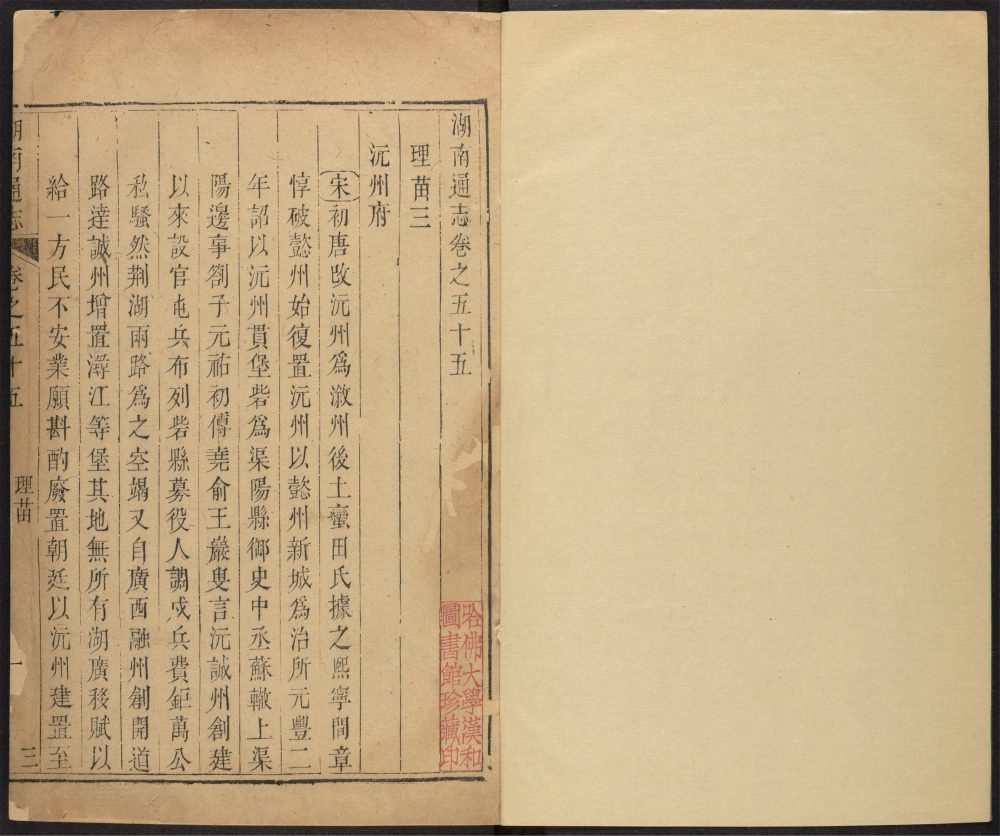 湖南通志卷之五十五
理苗三
沅州府
宋初唐改沅州爲溆州後土蠻田氏據之熙寧間章
惇破懿州始復置沅州以懿州新城爲治所元豐二
年詔以沅州貫堡砦爲渠陽縣御史中丞蘇轍上渠
陽邊事劄子元祐初傅堯俞王巖叟言沅誠州創建
以來設官屯兵布列砦縣募役人調戍兵費鉅萬公
私騷然荆湖兩路爲之空竭又自廣西融州創開道
路達誠州增置潯江等堡其地無所有湖廣移賦以
給一方民不安業願斟酌廢置朝廷以沅州建置至
湖南通志 卷之五十五 理苗 一 三
哈佛大學漢和
圖書館珍藏印